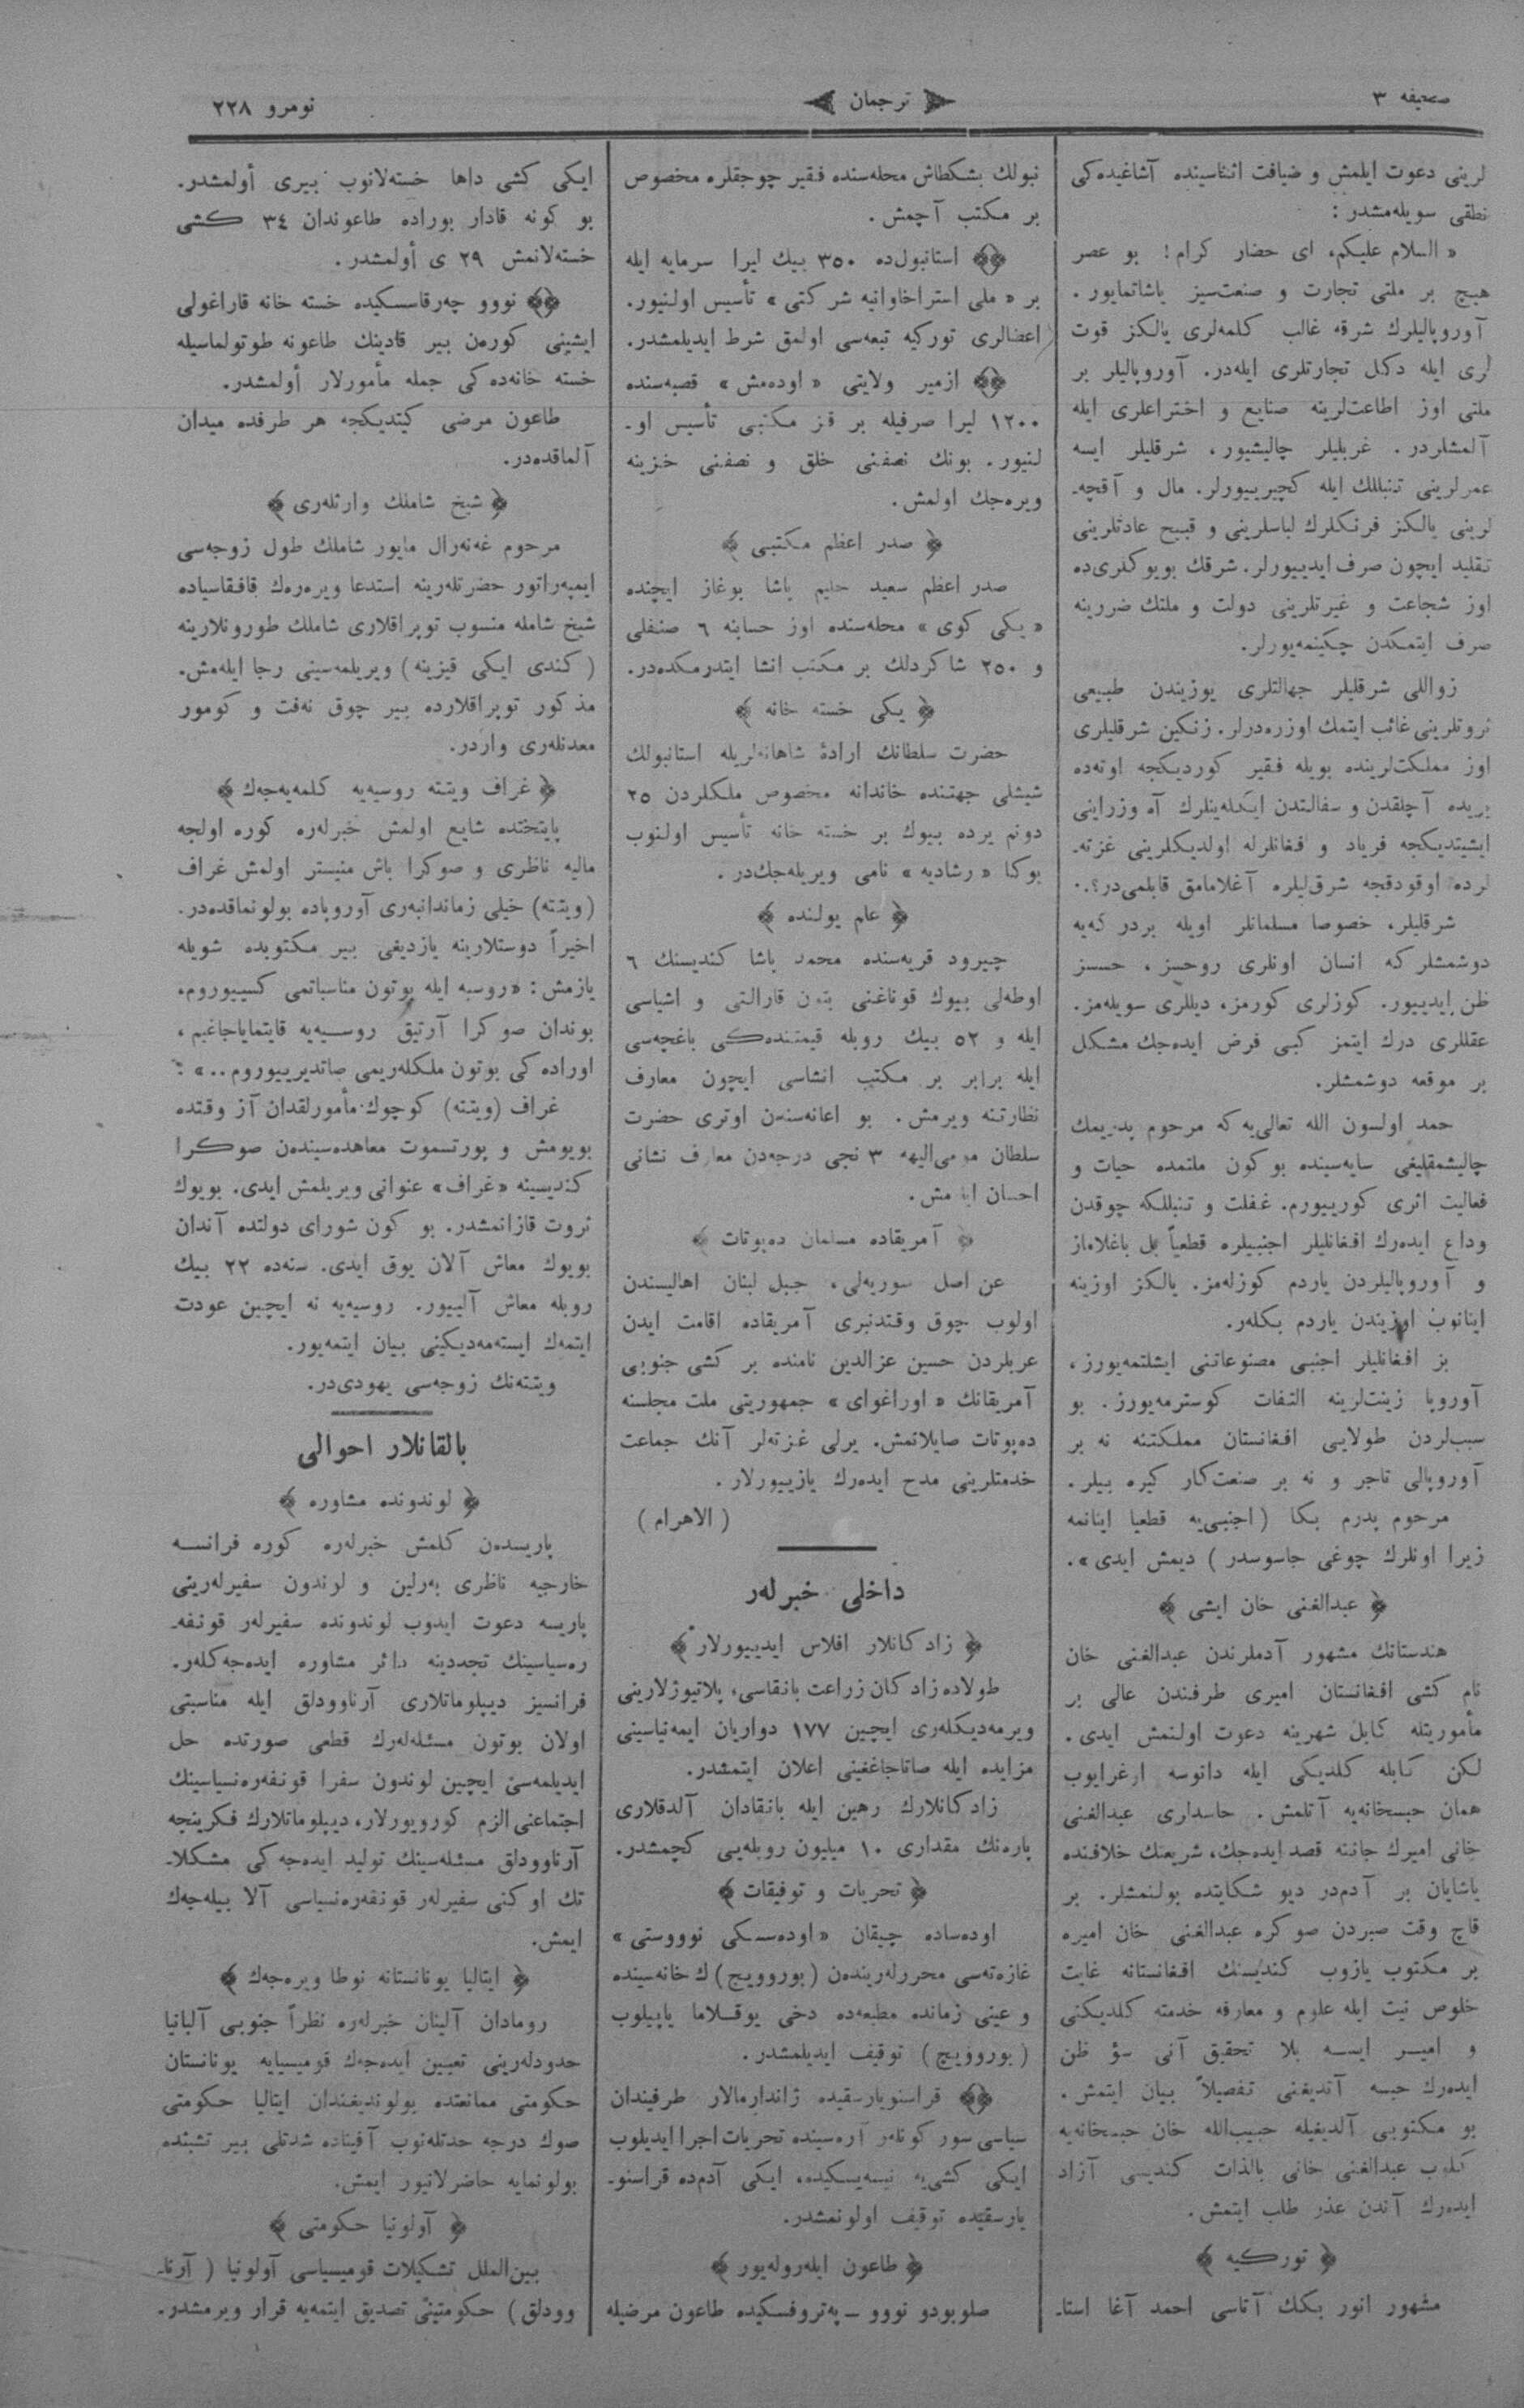 صحیفه ٣
ترجمان
نومرو ٢٢٨
لرینی دعوت ایلمش و ضیافت اثناسینده آشاغیده‌کی
نطقی سویله‌مشدر :
« السلام علیکم، ای حضار کرام! بو عصر
هیچ بر ملتی تجارت و صنعت‌سیز یاشاتمایور .
آوروپالیلرك شرقه غالب کلمه‌لری یالکز قوت
لری ایله دکل تجارتلری ایله‌در. آوروپالیلر بر
ملتی اوز اطاعت‌لرینه صنایع و اختراعلری ایله
آلمشلردر . غربلیلر چالیشیور، شرقلیلر ایسه
عمرلرینی تنبللك ایله کچیرییورلر. مال و آقچه‌ـ
لرینی یالکز فرنکلرك لباسلرینی و قبیح عادتلرینی
تقلید ایچون صرف ایدییورلر. شرقك بویوکلری‌ده
اوز شجاعت و غیرتلرینی دولت و ملتك ضررینه
صرف ایتمکدن چکینمه‌یورلر.
زواللی شرقلیلر جهالتلری یوزیندن طبیعی
ثروتلرینی غائب ایتمك اوزره‌درلر. زنکین شرقلیلری
اوز مملکت‌لرینده بویله فقیر کوردیکجه اوته‌ده
بریده آچلقدن و سفالتدن ایکله‌ینلرك آه وزراینی
ایشیتدیکجه فریاد و فغانلرله اولدیکلرینی غزته‌ـ
لرده اوقودقجه شرق‌لیلره آغلامامق قابلمی‌در؟.
شرقلیلر، خصوصا مسلمانلر اویله بردرکه‌یه
دوشمشلر که انسان اونلری روحسز ، حسسز
ظن ایدییور. کوزلری کورمز، دیللری سویله‌مز.
عقللری درك ایتمز کبی فرض ایده‌جك مشکل
بر موقعه دوشمشلر.
حمد اولسون الله تعالی‌یه که مرحوم پدریمك
چالیشمقلیغی سایه‌سینده بوکون ملتمده حیات و
فعالیت اثری کورییورم. غفلت و تنبللکه چوقدن
وداع ایده‌رك افغانلیلر اجنبیلره قطعیاً بل باغلاماز
و آوروپالیلردن یاردم کوزله‌مز. یالکز اوزینه
اینانوب اوزیندن یاردم بکلەر.
بز افغانلیلر اجنبی مصنوعاتنی ایشلتمه‌یورز،
آوروپا زینت‌لرینه التفات کوسترمه‌یورز. بو
سبب‌لردن طولایی افغانستان مملکتنه نه بر
آوروپالی تاجر و نه بر صنعت‌کار کیره بیلر.
مرحوم پدرم بکا ( اجنبی‌یه قطعیا اینانمه
زیرا اونلرك چوغی جاسوسدر ) دیمش ایدی».
﴿ عبدالغنی خان ایشی ﴾
هندستانك مشهور آدملرندن عبدالغنی خان
نام کشی افغانستان امیری طرفندن عالی بر
مأموریتله کابل شهرینه دعوت اولنمش ایدی.
لکن کابله کلدیکی ایله دانوسه اوغرایوب
همان حبسخانه‌یه آتلمش. حاسداری عبدالغنی
خانی امیرك جاننه قصد ایده‌جك، شریعتك خلافنده
یاشایان بر آدم‌در دیو شکایتده بولنمشلر. بر
قاچ وقت صبردن صوکره عبدالغنی خان امیره
بر مکتوب یازوب کندیسنك افغانستانه غایت
خلوص نیت ایله علوم و معارفه خدمته کلدیکنی
و امیر ایسه بلا تحقیق آنی سؤ ظن
ایده‌رك حبسه آتدیغنی تفصیلاً بیان ایتمش.
بو مکتوبی آلدیغیله حبیب‌الله خان حبسخانه‌یه
کلوب عبدالغنی خانی بالذات کندیسی آزاد
ایده‌رك آندن عذر طلب ایتمش.
﴿ تورکیه ﴾
مشهور انور بكك آتاسی احمد آغا استاـ
نبولك بشکطاش محله‌سنده فقیر چوجقلره مخصوص
بر مکتب آچمش .
﴿﴾ استانبول‌ده ٣٥٠ بیك لیرا سرمایه ایله
بر « ملی استراخاوانیه شرکتی » تأسیس اولنیور.
اعضالری تورکیه تبعه‌سی اولمق شرط ایدیلمشدر.
﴿﴾ ازمیر ولایتی « اوده‌مش » قصبه‌سنده
١٢٠٠ لیرا صرفیله بر قز مکتبی تأسیس اوـ
لنیور. بونك نصفنی خلق و نصفنی خزینه
ویره‌جك اولمش.
﴿ صدر اعظم مکتبی ﴾
صدر اعظم سعید حلیم پاشا بوغاز ایچنده
« یکی کوی » محله‌سنده اوز حسابنه ٦ صنفلی
و ٢٥٠ شاکردلك بر مکتب انشا ایتدرمکده‌در.
﴿ یکی خسته خانه ﴾
حضرت سلطانك ارادۀ شاهانه‌لریله استانبولك
شیشلی جهتنده خاندانه مخصوص ملکلردن ٢٥
دونم یرده بیوك بر خسته خانه تأسیس اولنوب
بوکا « رشادیه » نامی ویریله‌جك‌در .
﴿ علم یولنده ﴾
چیرود قریه‌سنده محمد پاشا کندیسنك ٦
اوطه‌لی بیوك قوناغنی بتون قارالتی و اشیاسی
ایله و ٥٢ بیك روبله قیمتنده‌کی باغچه‌سی
ایله برابر بر مکتب انشاسی ایچون معارف
نظارتنه ویرمش. بو اعانه‌سندن اوتری حضرت
سلطان مومی‌الیهه ٣ نجی درجه‌دن معارف نشانی
احسان ایلمش.
﴿ آمریقاده مسلمان ده‌پوتات ﴾
عن اصل سوریه‌لی، جبل لبنان اهالیسندن
اولوب چوق وقتدنبری آمریقاده اقامت ایدن
عربلردن حسین عزالدین نامنده بر کشی جنوبی
آمریقانك « اوراغوای » جمهوریتی ملت مجلسنه
ده‌پوتات صایلانمش. یرلی غزته‌لر آنك جماعت
خدمتلرینی مدح ایده‌رك یازییورلار.
( الاهرام )
داخلی خبرلەر
﴿ زادکانلار افلاس ایدییورلار ﴾
طولاده زادکان زراعت بانقاسی، پلاتیوژلارینی
ویرمه‌دیکله‌ری ایچین ١٧٧ دواریان ایمه‌نیاسینی
مزایده ایله صاتاجاغینی اعلان ایتمشدر.
زادکانلارك رهین ایله بانقادان آلدقلاری
پاره‌نك مقداری ١٠ میلیون روبله‌یی کچمشدر.
﴿ تحریات و توقیفات ﴾
اوده‌ساده چیقان « اوده‌سسکی نوووستی »
غازه‌ته‌سی محررله‌رینده‌ن ( بوروویچ )ك خانه‌سینده
و عینی زمانده مطبعه‌ده دخی یوقلاما یاپیلوب
( بوروویچ ) توقیف ایدیلمشدر.
﴿﴾ قراسنویارسقیده ژاندارمالار طرفیندان
سیاسی سورکونلەر آره‌سینده تحریات اجرا ایدیلوب
ایکی کشی‌یه ده‌ یه‌نیسه‌یسکیده، ایکی آدم‌ده قراسنوـ
یارسقیده توقیف اولونمشدر.
﴿ طاعون ایله‌روله‌یور ﴾
صلوبودو نووو ـ په‌تروفسکیده طاعون مرضیله
ایکی کشی داها خسته‌لانوب بیری أولمشدر.
بو کونه قادار بوراده طاعوندان ٣٤ کشی
خسته‌لانمش ٢٩ ی أولمشدر.
﴿﴾ نووو چه‌رقاسسکیده خسته خانه قاراغولی
ایشینی کوره‌ن بیر قادینك طاعونه طوتولماسیله
خسته خانه‌ده‌کی جمله مأمورلار أولمشدر.
طاعون مرضی کیتدیکجه هر طرفده میدان
آلماقده‌در.
﴿ شیخ شاملك وارثله‌ری ﴾
مرحوم غه‌نه‌رال مایور شاملك طول زوجه‌سی
ایمپه‌راتور حضرتله‌رینه استدعا ویره‌ره‌ك قافقاسیاده
شیخ شامله منسوب توپراقلاری شاملك طورونلارینه
( کندی ایکی قیزینه ) ویریلمه‌سینی رجا ایله‌مش.
مذکور توپراقلارده بیر چوق نه‌فت و کومور
معدنله‌ری واردر.
﴿ غراف ویتته روسیه‌یه کلمه‌یه‌جه‌ك ﴾
پایتختده شایع اولمش خبرله‌ره کوره اولجه
مالیه ناظری و صوکرا باش منیستر اولمش غراف
(ویتته) خیلی زماندانبه‌ری آوروپاده بولونماقده‌در.
اخیراً دوستلارینه یازدیغی بیر مکتوبده شویله
یازمش : « روسیه ایله بوتون مناسباتمی کسییوروم،
بوندان صوکرا آرتیق روسییه‌یه قایتمایاجاغیم،
اوراده‌کی بوتون ملکله‌ریمی صاتدیرییوروم..» :
غراف (ویتته) کوچوك مأمورلقدان آز وقتده
بویومش و پورتسموت معاهده‌سینده‌ن صوکرا
کندیسینه «غراف» عنوانی ویریلمش ایدی. بویوك
ثروت قازانمشدر. بو کون شورای دولتده آندان
بویوك معاش آلان یوق ایدی. سنه‌ده ٢٢ بیك
روبله معاش آلییور. روسیه‌یه نه ایچین عودت
ایتمه‌ك ایسته‌مه‌دیکینی بیان ایتمه‌یور.
ویتته‌نك زوجه‌سی یهودی‌در.
بالقانلار احوالی
﴿ لوندونده مشاوره ﴾
پاریسده‌ن کلمش خبرله‌ره کوره فرانسه
خارجیه ناظری به‌رلین و لوندون سفیرله‌رینی
پاریسه دعوت ایدوب لوندونده سفیرلەر قونفه‌ـ
ره‌سیاسینك تجددینه دائر مشاوره ایده‌جه‌کلەر.
فرانسیز دیپلوماتلاری آرناوودلق ایله مناسبتی
اولان بوتون مسئله‌لەرك قطعی صورتده حل
ایدیلمه‌سی ایچین لوندون سفرا قونفه‌ره‌نسیاسینك
اجتماعنی الزم کورویورلار، دیپلوماتلارك فکرینجه
آرناوودلق مسئله‌سینك تولید ایده‌جه‌کی مشکلاـ
تك اوکنی سفیرلەر قونفه‌ره‌نسیاسی آلا بیله‌جه‌ك
ایمش.
﴿ ایتالیا یونانستانه نوطا ویره‌جه‌ك ﴾
رومادان آلینان خبرله‌ره نظراً جنوبی آلبانیا
حدودله‌رینی تعیین ایده‌جه‌ك قومیسییایه یونانستان
حکومتی ممانعتده بولوندیغندان ایتالیا حکومتی
صوك درجه حدتله‌نوب آفیناده شدتلی بیر تشبثده
بولونمایه حاضرلانیور ایمش.
﴿ آولونیا حکومتی ﴾
بین‌الملل تشکیلات قومیسیاسی آولونیا ( آرناـ
وودلق ) حکومتینی تصدیق ایتمه‌یه قرار ویرمشدر.